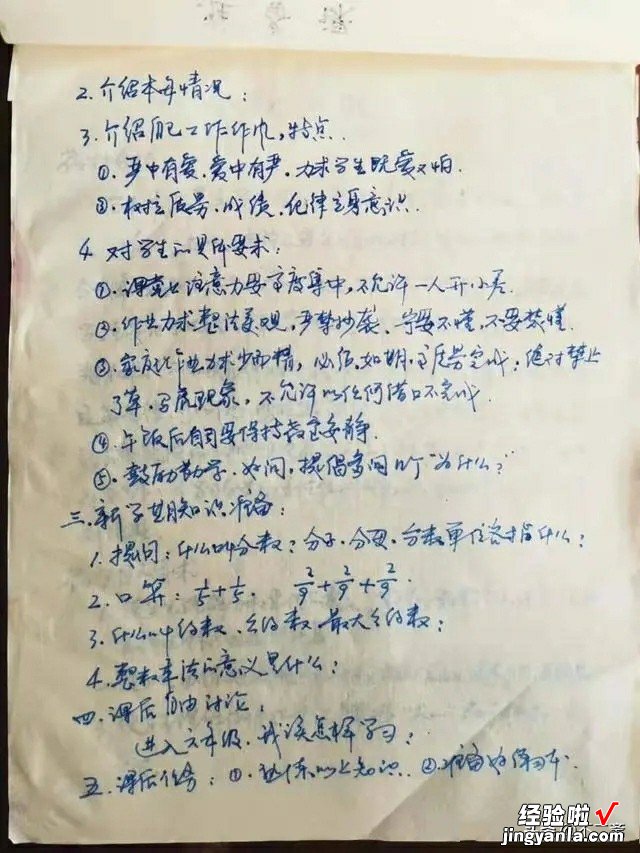 2. 介绍本年情况：
3. 介绍自己工作作风，特点.
①. 严中有爱，爱中有严，力求学生既爱又怕.
②. 树立质量、成绩、纪律主身意识.
4. 对学生的具体要求：
①. 课堂上注意力要高度集中，不允许一人开小差.
②. 作业力求整洁美观，严禁抄袭、宁要不懂，不要装懂.
③. 家庭作业力求少而精，必须，如期，高质量完成；绝对禁止
了草，马虎现象，不允许以任何借口不完成
④. 午饭后自习要保持教室安静.
⑤. 鼓励勤学、好问，提倡多问几个"为什么？"
三. 新学期知识准备：
1. 提问：什么叫分数？分子、分母、分数单位各指什么？
2. 口算：1/5+1/5， 2/9+2/9+2/9.
3. 什么叫约数、公约数、最大公约数；
4. 整数乘法的意义是什么；
四. 课后自由讨论：
进入六年级，我该怎样学习；
五. 课后任务：①. 以上知识. ②. 准备好练习本.
经验啦√
jingyanla.com